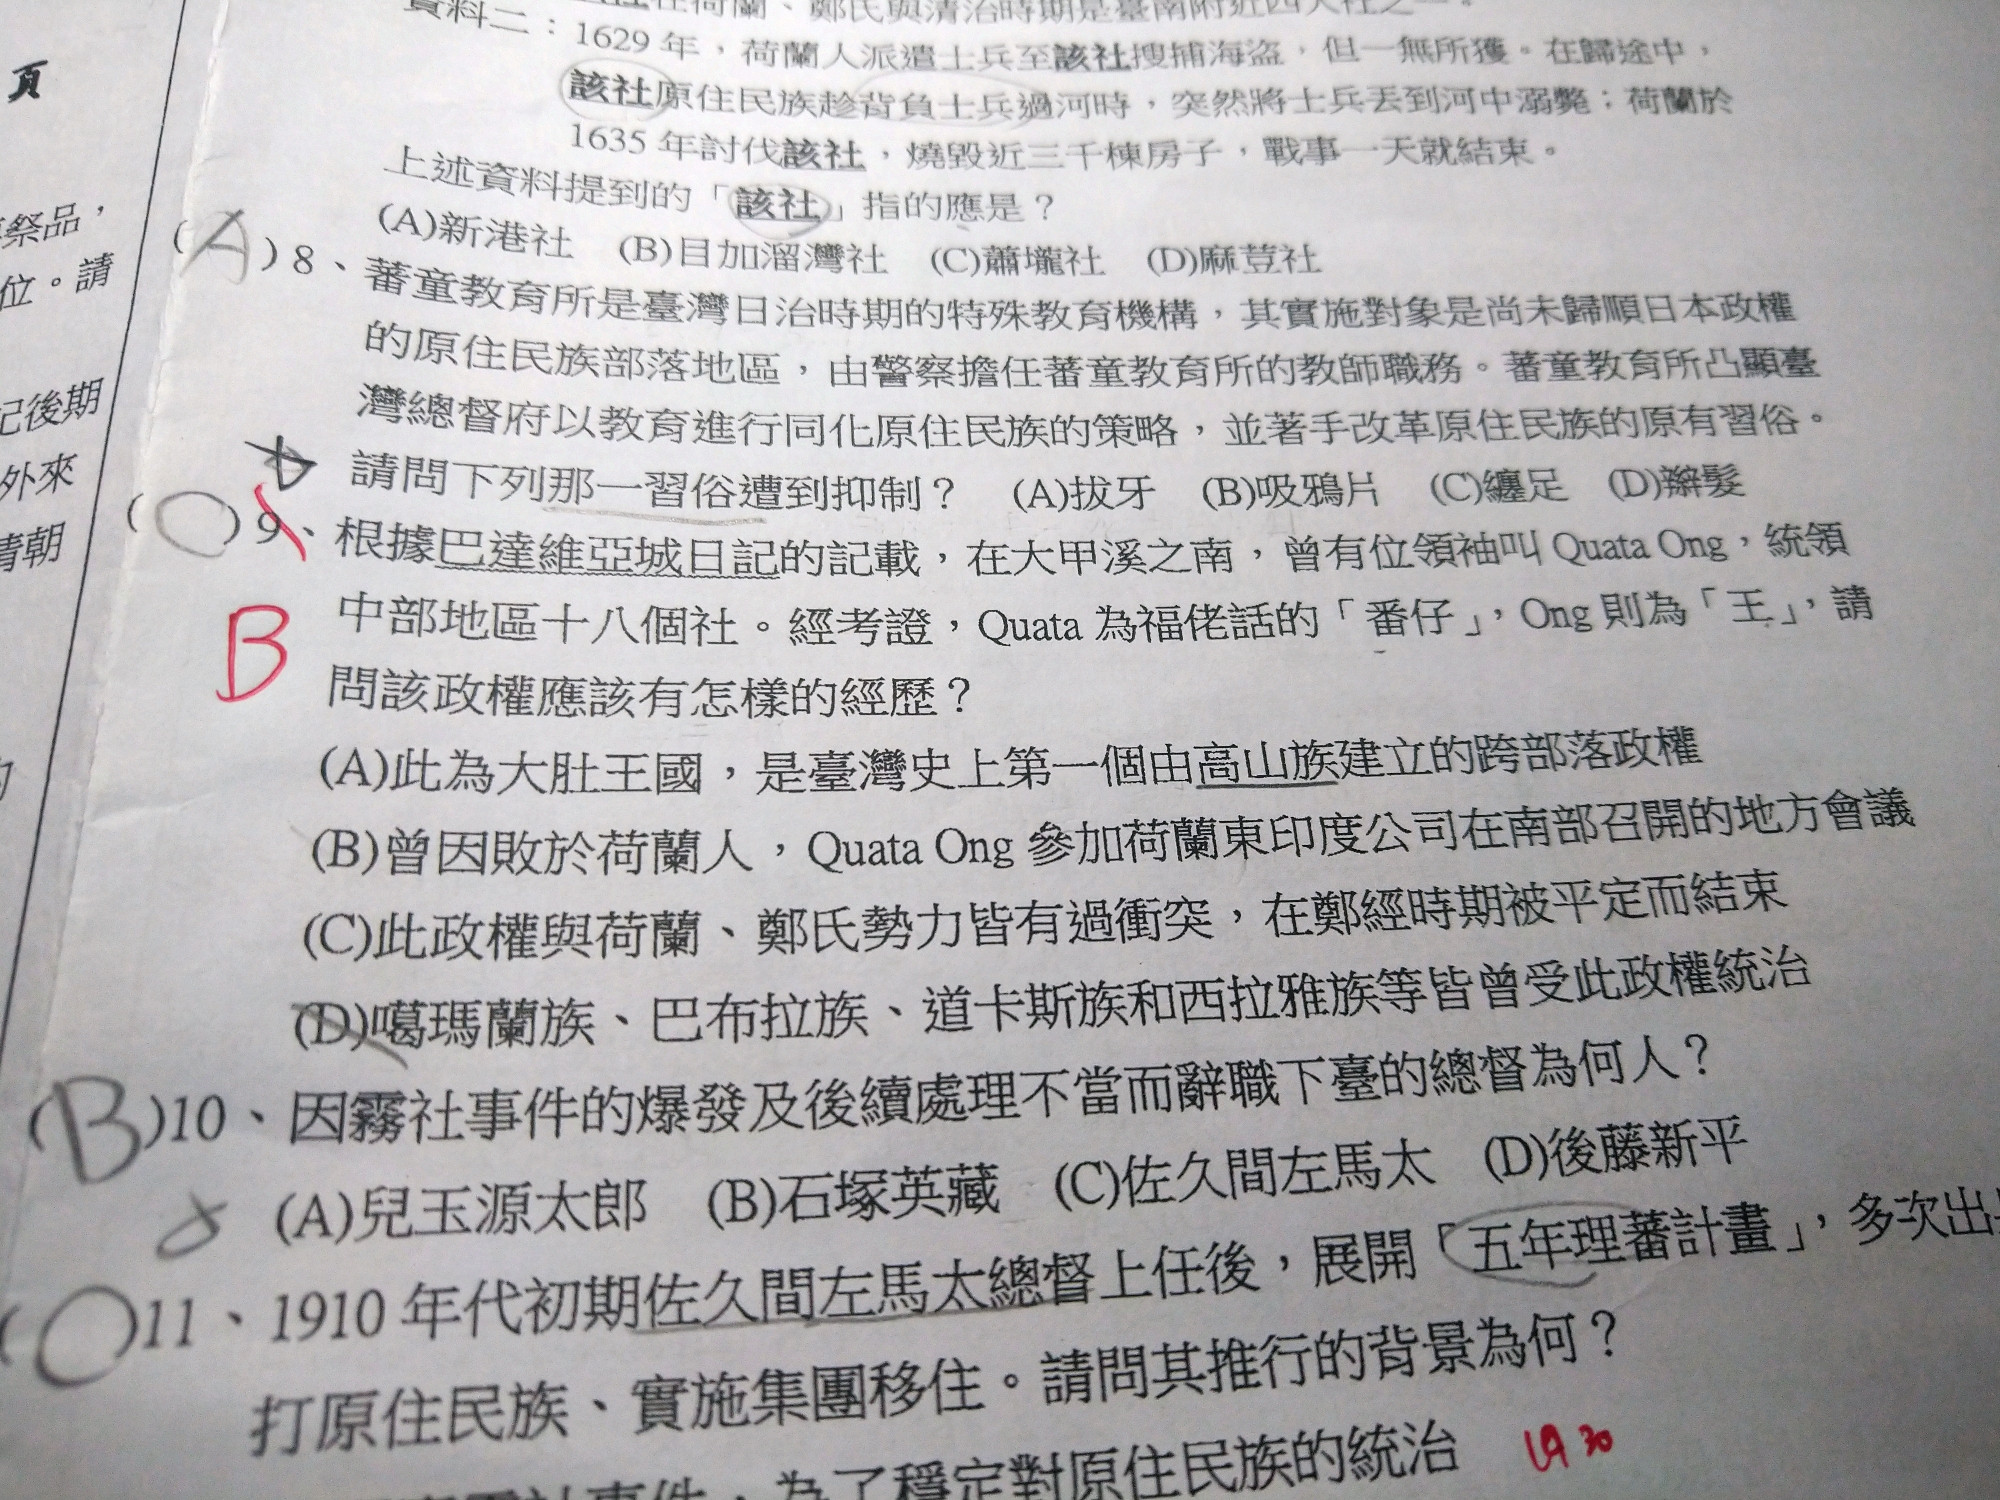 頁
祭品，
位。請
記後期
外來
清朝
在荷蘭、鄭氏與清治時期是臺南附近四大社之一。
資料二：1629 年，荷蘭人派遣士兵至該社搜捕海盜，但一無所獲。在歸途中，
該社原住民族趁背負士兵過河時，突然將士兵丟到河中溺斃；荷蘭於
1635 年討伐該社，燒毀近三千棟房子，戰事一天就結束。
上述資料提到的「該社」指的應是？
(A)新港社 (B)目加溜灣社 (C)蕭壠社 (D)麻荳社
(A)8、蕃童教育所是臺灣日治時期的特殊教育機構，其實施對象是尚未歸順日本政權
的原住民族部落地區，由警察擔任蕃童教育所的教師職務。蕃童教育所凸顯臺
灣總督府以教育進行同化原住民族的策略，並著手改革原住民族的原有習俗。
請問下列那一習俗遭到抑制？ (A)拔牙 (B)吸鴉片 (C)纏足 (D)辮髮
( )9、根據巴達維亞城日記的記載，在大甲溪之南，曾有位領袖叫 Quata Ong，統領
B 中部地區十八個社。經考證，Quata 為福佬話的「番仔」，Ong 則為「王」，請
問該政權應該有怎樣的經歷？
(A)此為大肚王國，是臺灣史上第一個由高山族建立的跨部落政權
(B)曾因敗於荷蘭人，Quata Ong 參加荷蘭東印度公司在南部召開的地方會議
(C)此政權與荷蘭、鄭氏勢力皆有過衝突，在鄭經時期被平定而結束
(D)噶瑪蘭族、巴布拉族、道卡斯族和西拉雅族等皆曾受此政權統治
(B)10、因霧社事件的爆發及後續處理不當而辭職下臺的總督為何人？
(A)兒玉源太郎 (B)石塚英藏 (C)佐久間左馬太 (D)後藤新平
( )11、1910 年代初期佐久間左馬太總督上任後，展開「五年理蕃計畫」，多次出
打原住民族、實施集團移住。請問其推行的背景為何？
社事件，為了穩定對原住民族的統治 1930